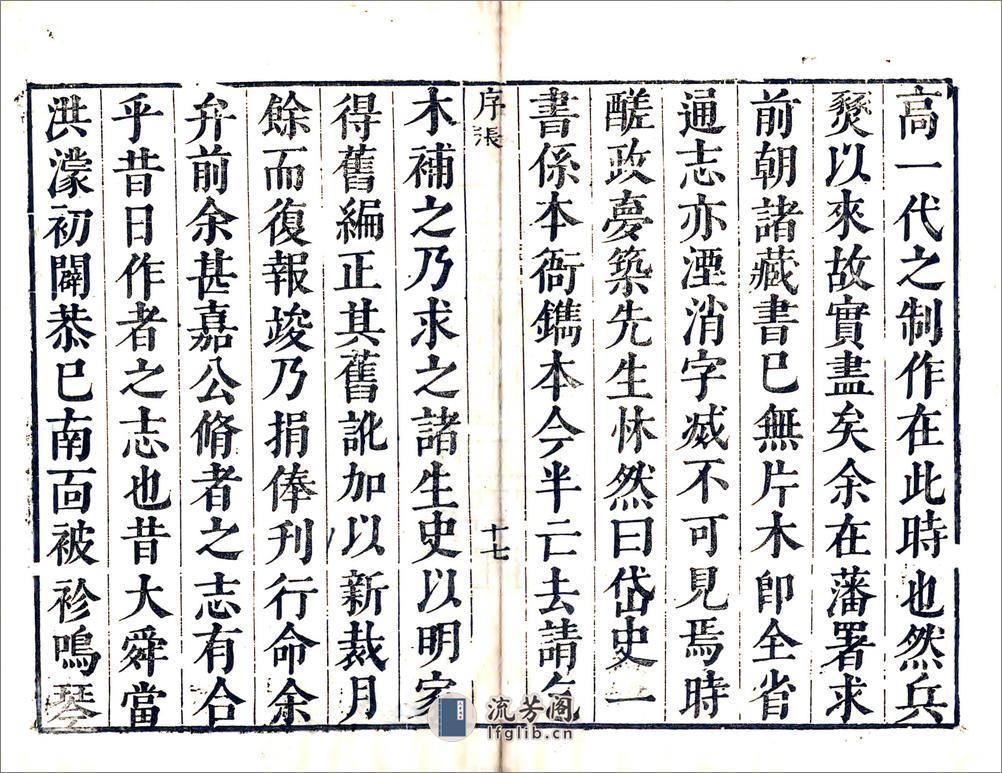 高一代之制作在此時也然兵
燹以來故實盡矣余在藩署求
前朝諸藏書已無片木即全省
通志亦湮消字滅不可見焉時
醝政夢築先生怵然曰岱史一
書係本衙鐫本今半亡去請
序張
十七
木補之乃求之諸生史以明家
得舊編正其舊訛加以新裁月
餘而復報竣乃捐俸刊行命余
弁前余甚嘉公脩者之志有合
乎昔日作者之志也昔大舜當
洪濛初闢恭已南面被袗鳴琴
流芳阁
lfglib.cn